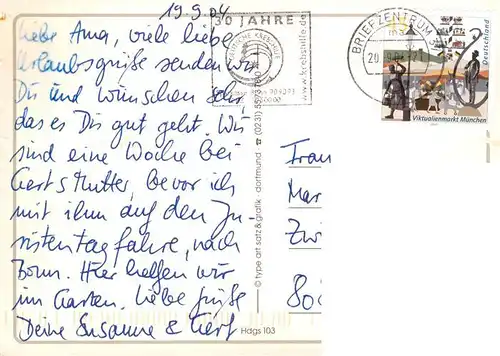 19.9.04
Liebe Ama, viele liebe
Urlaubsgrüße senden wir
Dir und wünschen sehr,
das es Dir gut geht. Wir
sind eine Woche bei
Gerts Mutter, bevor ich
mit ihm auf den Ju-
ristentag fahre, nach
Bonn. Hier helfen wir
im Garten. Liebe Grüße
Deine Susanne & Gert
30 JAHRE
DEUTSCHE KREBSHILFE
www.krebshilfe.de
BRIEFZENTRUM
Deutschland
Viktualienmarkt München
© type art satz & grafik · dortmund ☎ (0231)
Hdgs 103
Frau
Mar
Zwi
80